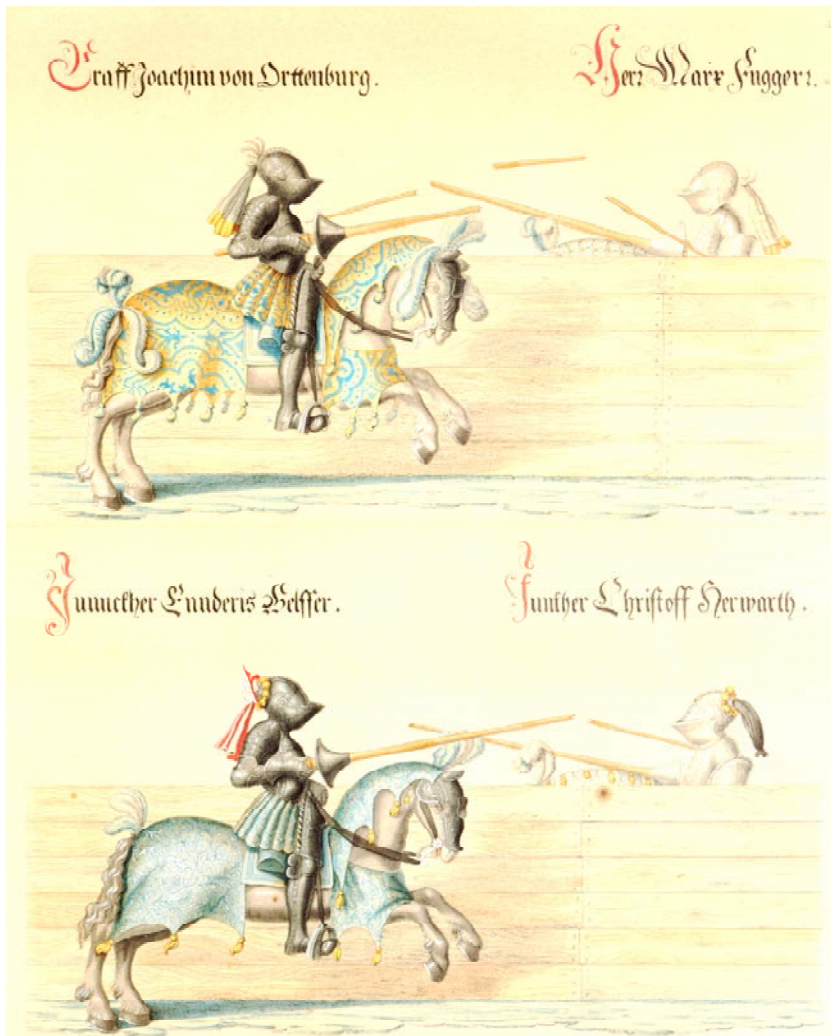 Graff Joachim von Orttenburg.
Herr Marx Fugger.
Junckher Enderis Welsser.
Junkher Christoff Herwarth.